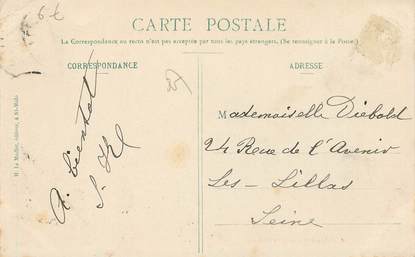 6 €
CARTE POSTALE
La Correspondance au recto n'est pas acceptée par tous les pays étrangers. (Se renseigner à la Poste)
CORRESPONDANCE
ADRESSE
Mademoiselle Diebold
24 Rue de l'Avenir
Les-Lillas
Seine